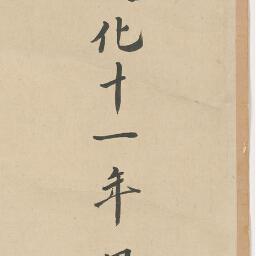 化十一年